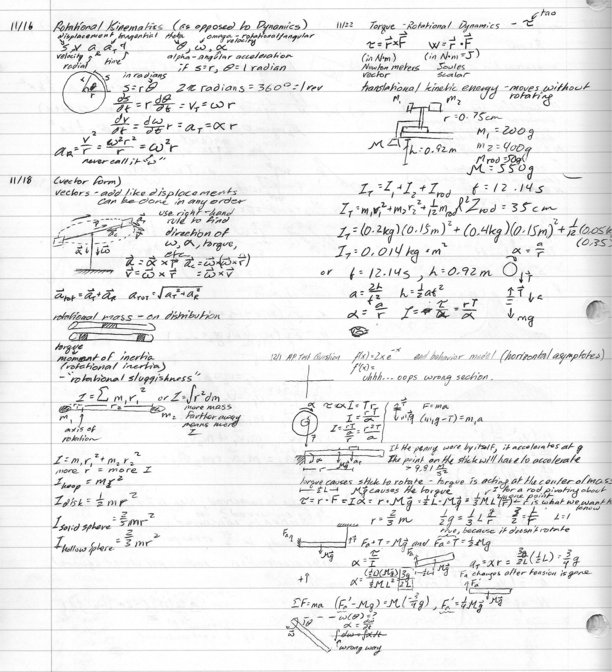 11/16 Rotational Kinematics (as opposed to Dynamics)
displacement tangential theta omega-rotational/angular velocity
s, v, a, a_T, t θ, ω, α
velocity radial time alpha-angular acceleration
if s=r, θ=1 radian
in radians
s=rθ 2π radians=360°=1rev
ds/dt = r dθ/dt = v_T = ωr
dv/dt = dω/dt r = a_T = αr
a_R = v²/r = ω²r²/r = ω²r
never call it "w"
11/18 (vector form)
vectors - add like displacements
can be done in any order
use right-hand
rule to find
direction of
ω, α, torque,
etc
a_T = α × r a_c = ω×(ω×r)
v = ω × r = ω×v
a_tot = a_T + a_R a_TOT = √(a_T² + a_R²)
rotational mass - on distribution
torque
moment of inertia
(rotational inertia)
- "rotational sluggishness"
I = Σ m₁r₁² or I = ∫r²dm
more mass
farther away
means more
I
m₁ r₁ r₂ m₂
axis of
rotation
I = m₁r₁² + m₂r₂²
more r = more I
I hoop = mr²
I disk = ½mr²
I solid sphere = 2/5 mr²
I hollow sphere = 2/3 mr²
11/22 Torque - Rotational Dynamics - τ tao
τ = r×F W = r·F
(in N·m) (in N·m=J)
Newton meters Joules
vector scalar
translational kinetic energy - moves without
rotating
M₁ m₂
r=0.75cm
m₁=200g
m₂=400g
m rod=50g
M=550g
M h=0.92m
I_T = I₁+I₂+I rod t=12.14s
I_T = m₁r₁²+m₂r₂²+1/12 m rod l² l rod=35cm
I_T = (0.2kg)(0.15m)²+(0.4kg)(0.15m)²+1/12(0.05k
(0.35
I_T = 0.014kg·m² α = a/r
or t=12.14s, h=0.92m
a = 2h/t² h=½at²
α = a/r I = τ/α = rT/α
T a mg
(21) AP Test Question f(x)=2xe^-x end behavior model (horizontal asymptotes)
f'(x)=
uhhh... oops wrong section.
τ=αI=Tr F=ma
I=rT/α (m₁g-T)=m₁a
I=rT/(a/r)=r²T/a
If the penny were by itself, it accelerates at g
The point on the stick will have to accelerate
> 9.81 m/s²
torque causes stick to rotate - torque is acting at the center of mass
Mg causes the torque r=? for a rod pivoting about
r=2/3m L=1
true, because it doesn't rotate
F_a+T=Mg and F_a=T=½Mg
α=τ/I
F_a changes after tension is gone
ΣF=ma (F_a'-Mg)=M(-3/4g), F_a'=¼Mg
ω(θ)=?
α=dω/dt
∫dω=∫αdt
wrong way